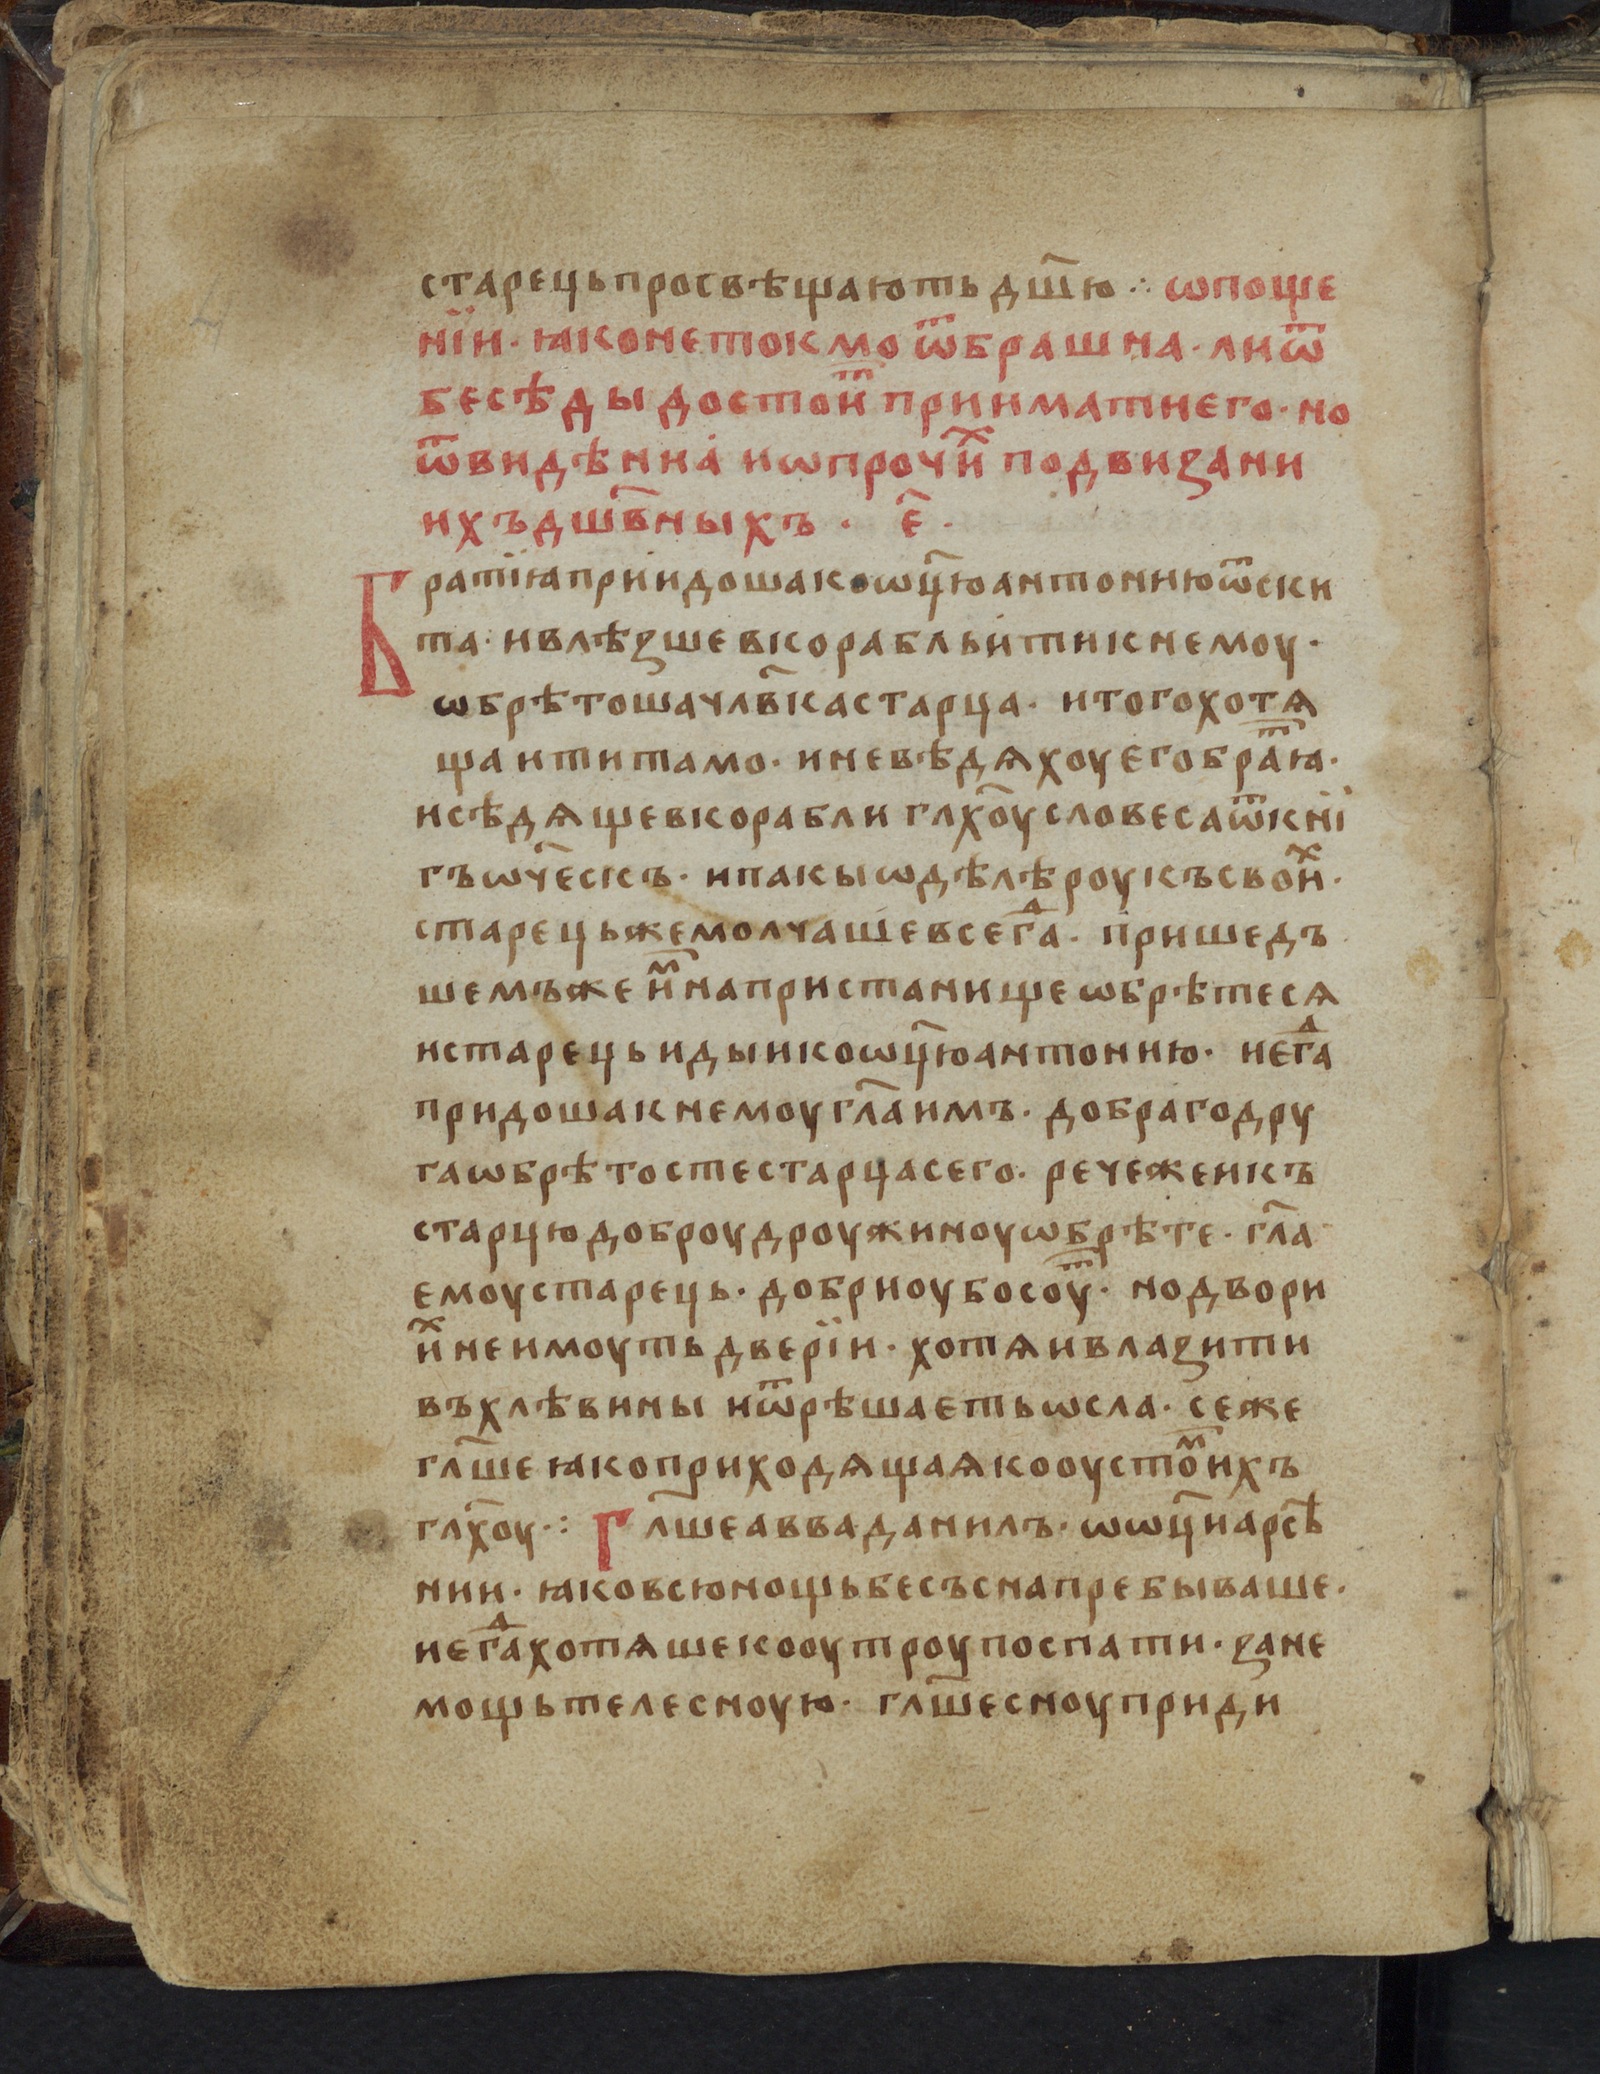 старець просвѣщають дш҃ю ⁘ ѡ поще
нїи · ꙗко не токмо ѿ брашна · ли ѿ
бесѣды достоиⷮ приимати его · но
ѿ видѣниа и ѡ прочиⷯ подвиꙁани
ихъ дш҃вныхъ · є҃ ·
Братїꙗ приидоша ко ѡц҃ю антонию ѿ ски
та · и влѣꙁше в корабль ити к немоу ·
ѡбрѣтоша чл҃вка старца · и того хотѧ
ща ити тамо · и невѣдѧхоу его браⷮꙗ ·
и сѣдѧще в корабли гл҃хоу словеса ѿ кнї
гъ ѡч҃ескъ · и пакы ѡ дѣлѣ роукъ своиⷯ ·
старець же молчаше всегⷣа · пришед
шемъ же иⷨ на пристанище ѡбрѣтесѧ
и старець иды и ко ѡц҃ю антонию · и єгⷣа
придоша к немоу гл҃а имъ · добра го дру
га ѡбрѣтосте старца сего · рече же и къ
старцю доброу дроужиноу ѡбрѣте · гл҃а
емоу старець · добри оубо соуⷮ · но двори
иⷯ не имоуть дверїи · хотѧи влаꙁити
въ хлѣвины и ѿрѣшаєть ѡсла · се же
гл҃ше ꙗко приходѧщаѧ ко оустоⷨ ихъ
гл҃хоу ⁘ Гл҃ше авва данилъ · ѡ ѡц҃и арсѣ
нии · ꙗко всю нощь бесъ сна пребываше ·
и єгⷣа хотѧше ко оутроу поспати · ꙁа не
мощь телесноую · гл҃ше сноу приди